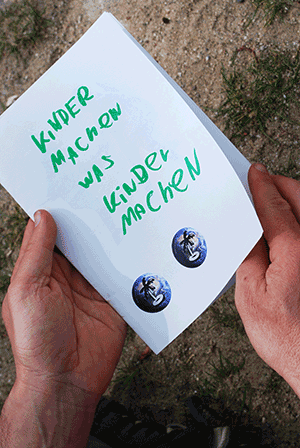 KINDER
MACHEN
WAS
KiNDEr
MACHEN